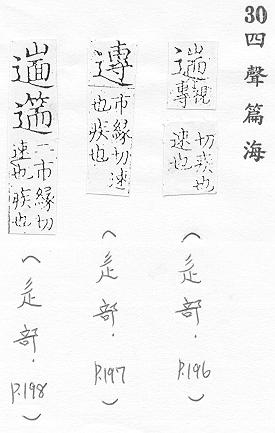 30四聲篇海
遄視專
切疾也速也
(辵部.P.196)
市緣切速也疾也
(辵部.P.197)
遄
一市緣切速也疾也
(辵部.P.198)